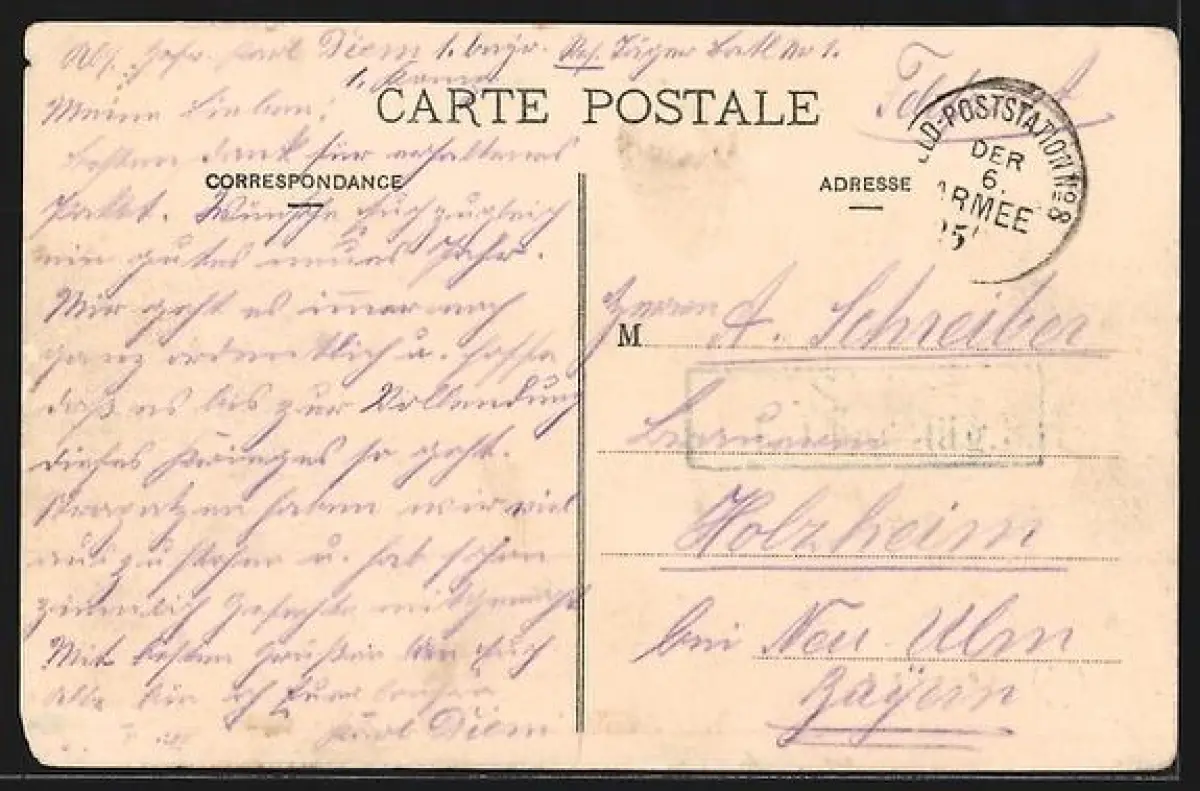 Abs. Karl Diem 1. bayr. Res. Jäger Batl. Nr 1.
1. Komp.
Meine Lieben!
CARTE POSTALE
Feldpost
Besten Dank für erhaltenes
CORRESPONDANCE
Paket. Wünsche Euch zugleich
ein gutes neues Jahr.
Mir geht es immer noch
ganz ordentlich u. hoffe
daß es bis zur Vollendung
dieses Krieges so geht.
Strapatzen haben wir viel
auszustehen u. hab schon
ziemlich Gefechte mitgemacht
Mit besten Grüßen an Euch
Alle bin ich Euer
Karl Diem
ADRESSE
LD-POSTSTATION No 8
DER
6.
ARMEE
M
Herrn A. Schreiber
Brauerei
Holzheim
bei Neu-Ulm
Bayern